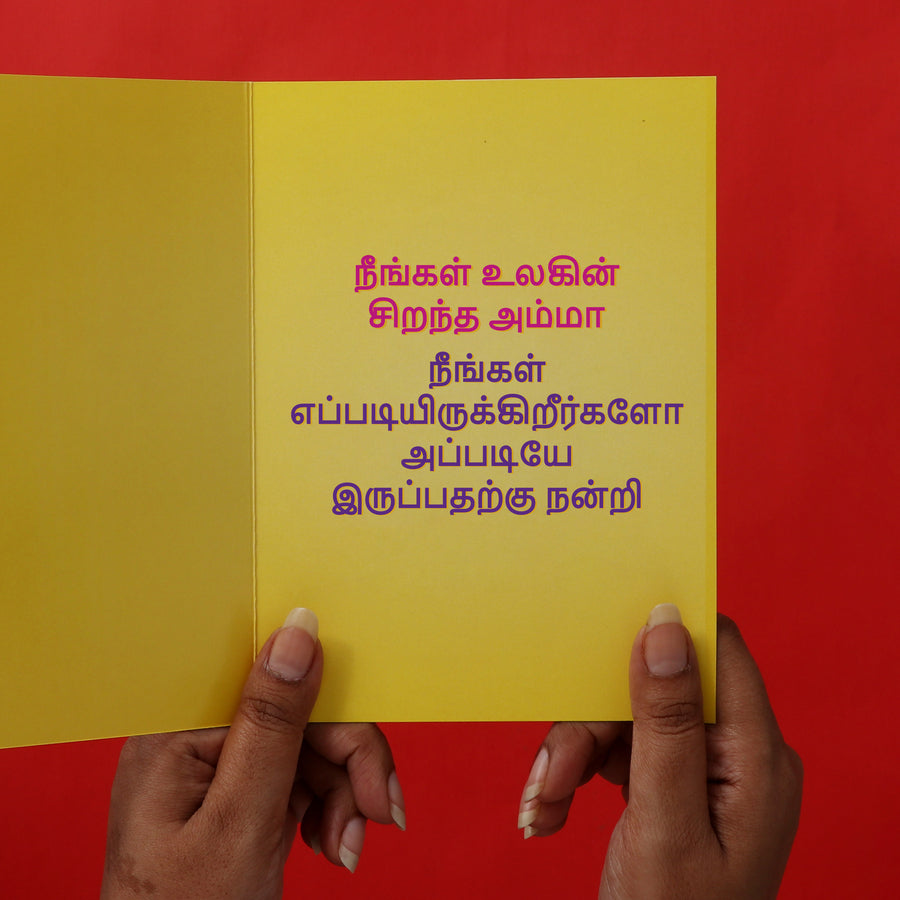 நீங்கள் உலகின்
சிறந்த அம்மா
நீங்கள்
எப்படியிருக்கிறீர்களோ
அப்படியே
இருப்பதற்கு நன்றி